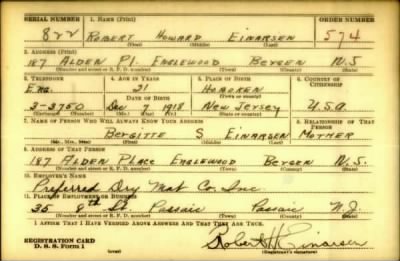 SERIAL NUMBER 1. NAME (Print) ORDER NUMBER
822 ROBERT HOWARD EINARSEN 574
(First) (Middle) (Last)
2. ADDRESS (Print)
187 ALDEN Pl. ENGLEWOOD BERGEN N.J.
(Number and street or R. F. D. number) (Town) (County) (State)
3. TELEPHONE 4. AGE IN YEARS 5. PLACE OF BIRTH 6. COUNTRY OF CITIZENSHIP
Eng. 21 HOBOKEN
DATE OF BIRTH (Town or county)
3-3750 Dec 7 1918 New JERSEY U.S.A
(Exchange) (Number) (Mo.) (Day) (Yr.) (State or country)
7. NAME OF PERSON WHO WILL ALWAYS KNOW YOUR ADDRESS 8. RELATIONSHIP OF THAT PERSON
BERGITTE S EINARSEN MOTHER
(Mr., Mrs., Miss) (First) (Middle) (Last)
9. ADDRESS OF THAT PERSON
187 ALDEN PLACE ENGLEWOOD BERGEN N.J.
(Number and street or R. F. D. number) (Town) (County) (State)
10. EMPLOYER'S NAME
Preferred Dry Mat Co. Inc.
11. PLACE OF EMPLOYMENT OR BUSINESS
35 8th St. Passaic Passaic N.J.
(Number and street or R. F. D. number) (Town) (County) (State)
I AFFIRM THAT I HAVE VERIFIED ABOVE ANSWERS AND THAT THEY ARE TRUE.
REGISTRATION CARD
D. S. S. Form 1
Robert H Einarsen
(Registrant's signature)